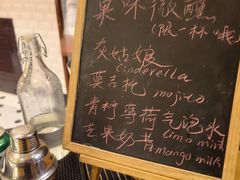 果味微醺
(限一杯哦)
灰姑娘
Cinderella
莫吉托 mojito
青柠薄荷气泡水
lime mint
芒果奶昔
mango milk